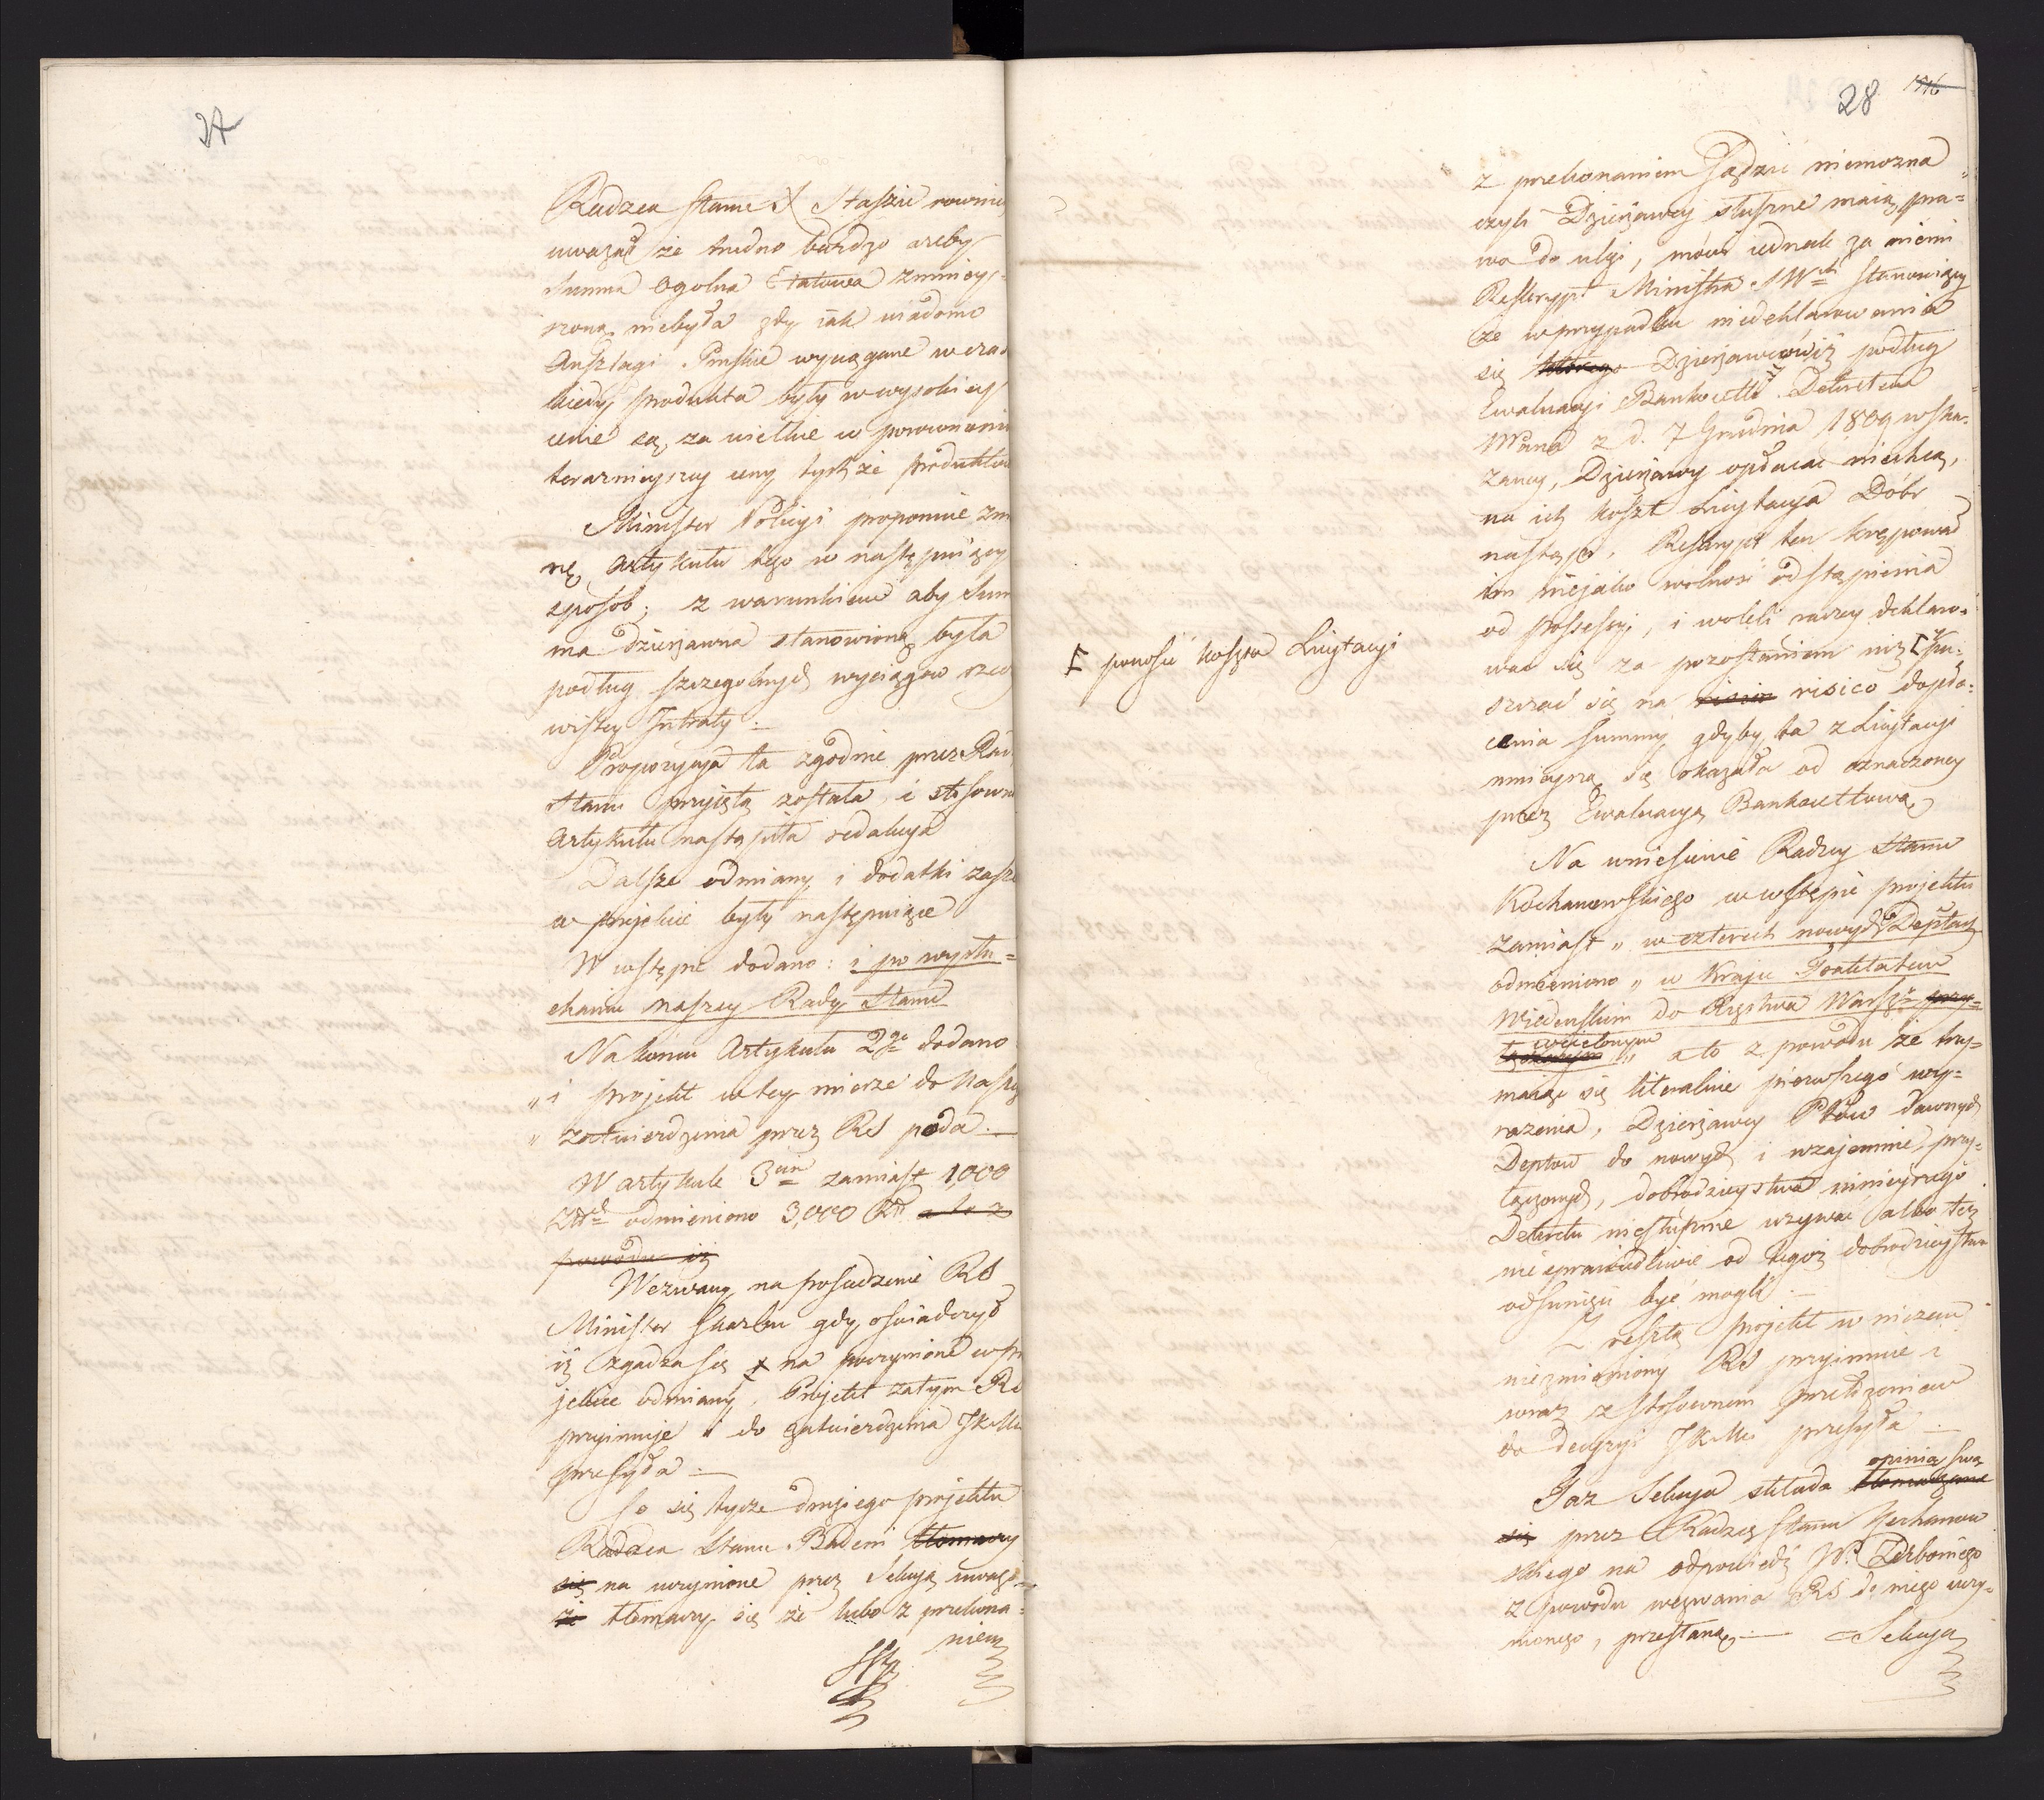 27
Radzca Stanu X Staszic rownież
uważał że trudno bardzo ażeby
Summa Ogolna Etatowa zmniey-
szoną niebyła gdy iak wiadomo
Anszlagi Pruskie wyciągane w czas
kiedy produkta były w wysokiey
cenie są, za wielkie w porownaniu
terazniejszey ceny tychże produktow
Minister Policyi proponuie zm
nę Artykułu tego w następuiący
sposob; z warunkiem aby Sum
ma dzierżawna stanowioną była
podług szczegolnych wyciągow rzec
wistey Intraty.
Propozycya ta zgodnie przez Rad
Stanu przyiętą została, i stosowna
Artykułu nastąpiła redakcya
Dalsze odmiany i dodatki zasz
w projekcie były następuiące
W wstępie dodano: i po wysłu-
chaniu naszey Rady Stanu
Na koncu Artykułu 2go dodano
„ i projekt w tey mierze do Naszeg
„ zatwierdzenia przez RS poda.
W artykule 3cim zamiast 1,000
Złłch odmieniono 3,000 Złł. a to z
powodu iż
Wezwany na posiedzenie RS
Minister Skarbu gdy oświadczył
iż zgadza się na poczynione w pr
jekcie odmiany, Projekt zatym RS
przyimuje i do zatwierdzenia JKMci
przesyła.
Co się tycze drugiego projektu
Radzca Stanu Badeni tłomaczy
się na uczynione przez Sekcyą uwagi
że tłomaczy się że lubo z przekona-
niem
28
z przekonaniem Sądzić niemożna
czyli Dzierżawcy słuszne maią pra-
wo do ulgi, mowi iednak za niemi
Reskrypt Ministra SWch stanowiący
że w przypadku niedeklarowania
się którego Dzierżawcow iż podług
Ewaluacyi Bankocetlow Dekretem
z d. 7 Grudnia 1809 wska-
zaney, Dzierżawy opłacać niechcą,
na ich koszt Licytacya Dóbr
nastąpi. Reskrypt ten krępował
im niejako wolność odstąpienia
od possessyi, i woleli raczey deklaro-
wać się za pozostaniem niż [ Pu-
szczać się na risico risico dopła-
cenia Summy gdyby ta z Licytacyi
mnieyszą się okazała od oznaczoney
przez Ewaluacyą Bankocetlową
[ ponosić koszta Licytacyi
Na wniesienie Radzcy Stanu
Kochanowskiego w wstępie projektu
zamiast „ w czterech nowych Deptach
odmieniono „ w Kraju Traktatem
Wiedenskim do Xięstwa Warszgo przy-
łączonym wcielonym „ a to z powodu że trzy-
maiąc się literalnie pierwszego wy-
rażenia, Dzierżawcy Ptow dawnych
Deptow do nowych i wzajemnie przy-
łączonych, dobrodzieystwa ninieyszego
Dekretu niesłusznie używać albo też
niesprawiedliwie od tegoż dobrodzieystwa
odsunięci być mogli.
Z resztą projekt w niczem
niezmieniony RS przyimuie i
wraz z stosownem przełożeniem
do decyzyi JKMci przesyła.
Taz Sekcya składa tłomaczenie opinią swą
się przez Radzcę Stanu Kochanow
skiego na odpowiedź W. Zerboniego
z powodu wezwania RS do niego uczy-
nionego, przesłaną. Sekcya